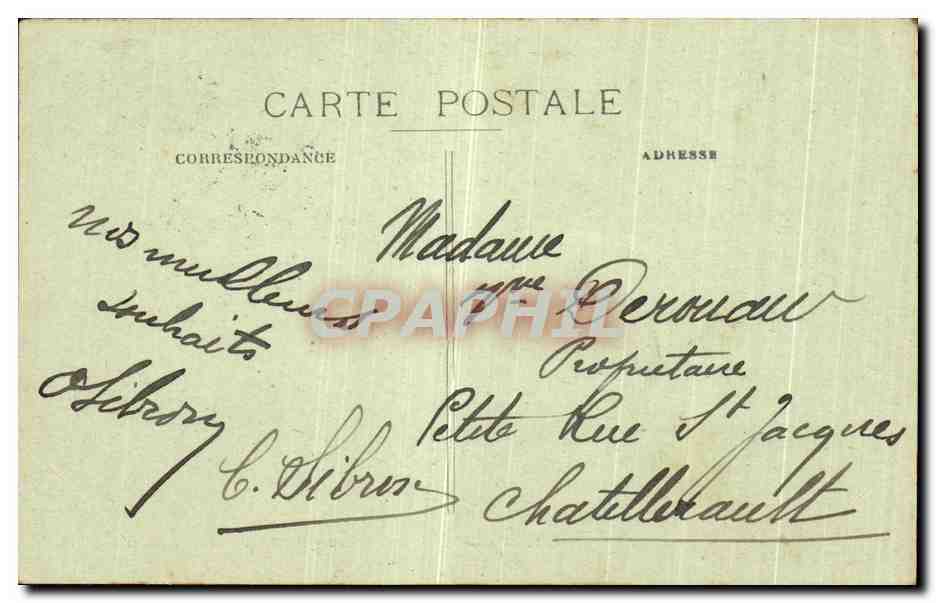 CARTE POSTALE
CORRESPONDANCE
ADRESSE
Nos meilleurs
souhaits
Madame
Vve Derouau
Propriétaire
Petite Rue St Jacques
Chatellerault
CPAPHIL